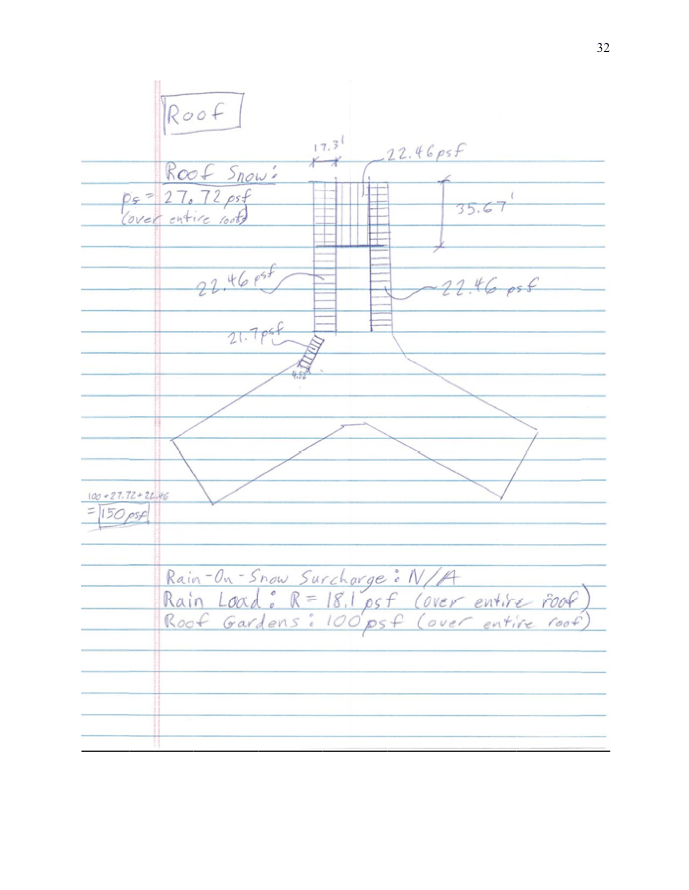 32
Roof
17.3'
22.46 psf
Roof Snow:
ps = 27.72 psf
(over entire roof)
35.67'
22.46 psf
22.46 psf
21.7 psf
100+27.72+22.46
= 150 psf
Rain-On-Snow Surcharge: N/A
Rain Load: R = 18.1 psf (over entire roof)
Roof Gardens: 100 psf (over entire roof)